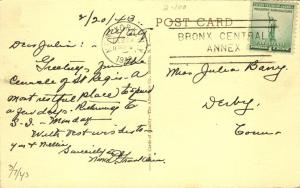 2/20/43
2-100
N.Y. City
POST CARD
BRONX CENTRAL
ANNEX
Dear Julia:
Greetings from the
Cenacle of St Regis. A
most restful place to spend
a few days. Returning to
S.I. - Monday
With best wishes to
you & Nellie,
Sincerely
Miss Julia Barry,
Derby,
Conn.